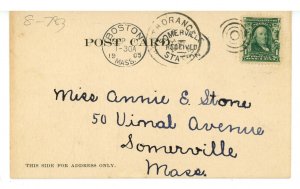 8-783
POST CARD
BOSTON
1-30A
MASS.
SOMERVILLE
RECEIVED
STATION
Miss Annie E. Stone
50 Vinal Avenue
Somerville
Mass.
THIS SIDE FOR ADDRESS ONLY.